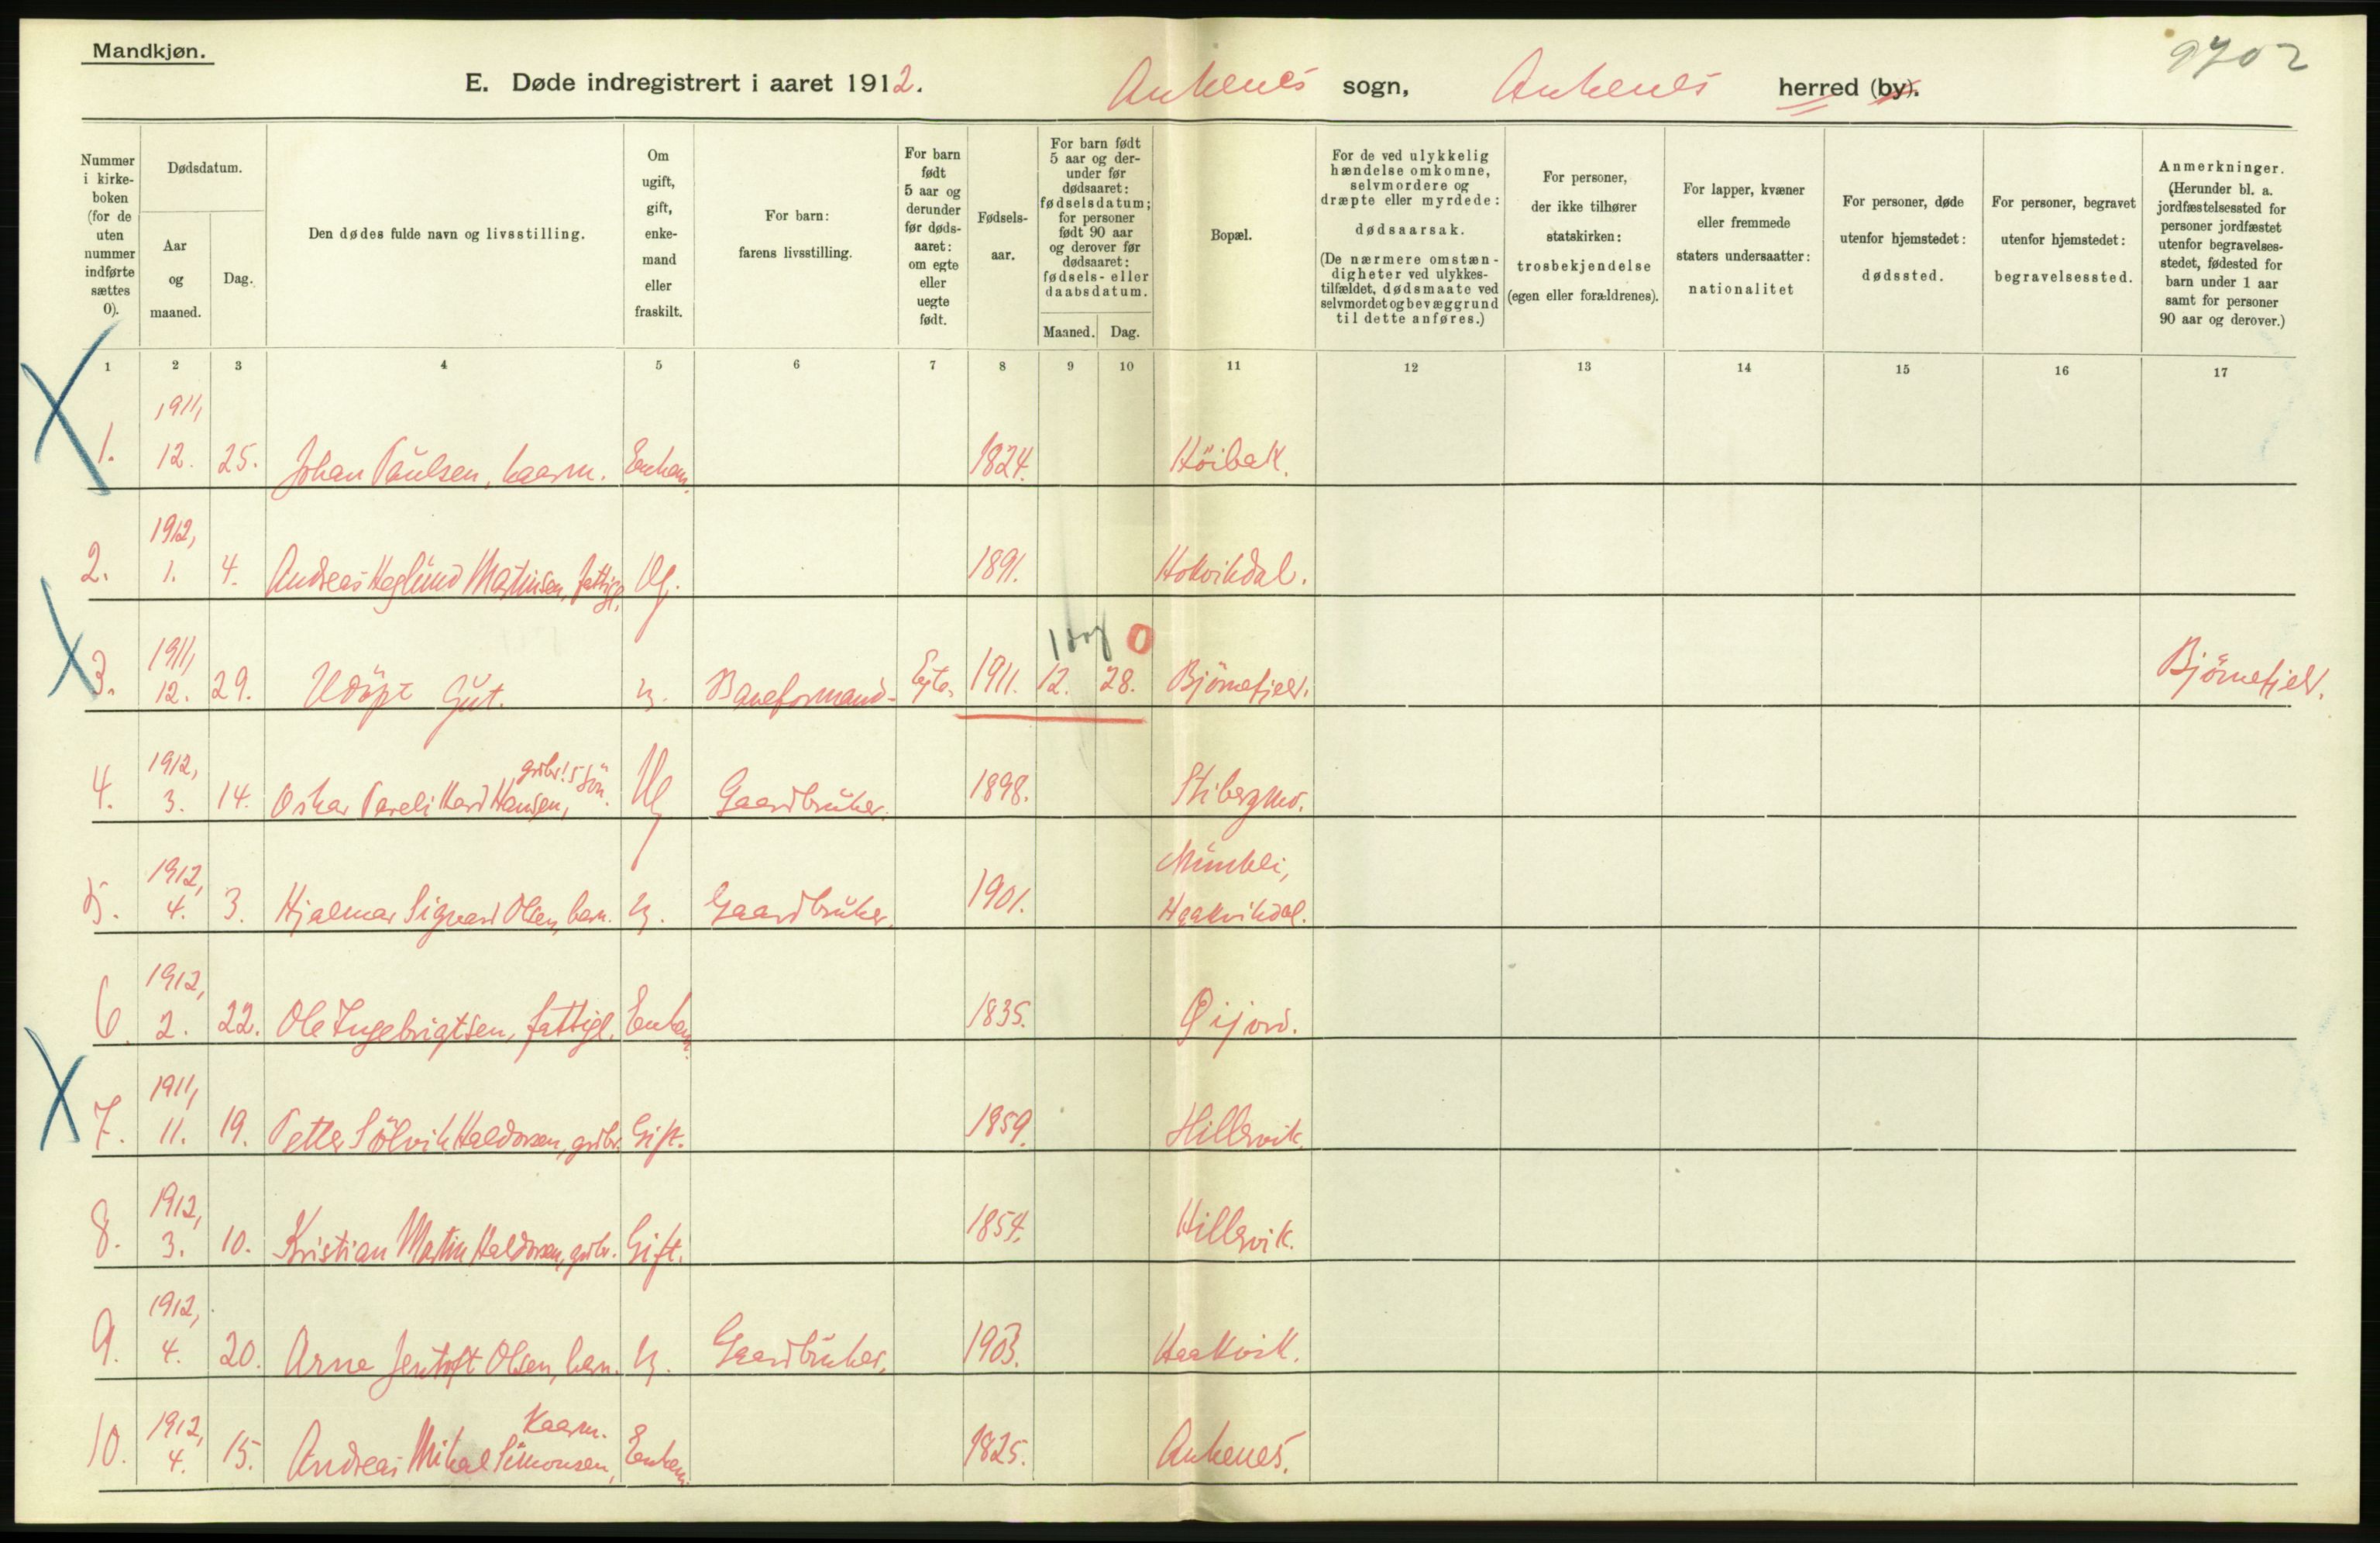 Mandkjøn.
9702
E. Døde indregistrert i aaret 1912. Ankenes sogn, Ankenes herred (by).
Nummer i kirke- boken (for de uten nummer indførte sættes 0).
Dødsdatum.
Aar og maaned.
Dag.
Den dødes fulde navn og livsstilling.
Om ugift, gift, enke- mand eller fraskilt.
For barn: farens livsstilling.
For barn født 5 aar og derunder før døds- aaret: om egte eller uegte født.
Fødsels- aar.
For barn født 5 aar og der- under før dødsaaret: fødselsdatum; for personer født 90 aar og derover før dødsaaret: fødsels- eller daabsdatum.
Maaned. Dag.
Bopæl.
For de ved ulykkelig hændelse omkomne, selvmordere og dræpte eller myrdede: dødsaarsak. (De nærmere omstæn- digheter ved ulykkes- tilfældet, dødsmaate ved selvmordet og bevæggrund til dette anføres.)
For personer, der ikke tilhører statskirken: trosbekjendelse (egen eller forældrenes).
For lapper, kvæner eller fremmede staters undersaatter: nationalitet
For personer, døde utenfor hjemstedet: dødssted.
For personer, begravet utenfor hjemstedet: begravelsessted.
Anmerkninger. (Herunder bl. a. jordfæstelsessted for personer jordfæstet utenfor begravelses- stedet, fødested for barn under 1 aar samt for personer 90 aar og derover.)
1 2 3 4 5 6 7 8 9 10 11 12 13 14 15 16 17
1911,
1. 12. 25. Johan Paulsen, kaarm. Enkem. 1824. Höibak.
1912,
2. 1. 4. Andreas Heglund Martinsen, fattigl. Ug. 1891. Hokvikdal.
1911,
0
3. 12. 29. Udöpt Gut. U. Baneformand Egte. 1911. 12. 28. Björnefjeld. Björnefjeld.
1912, grdbr.s sön.
4. 3. 14. Oskar Pareli Hansen, Ug Gaardbruker. 1898. Stibergmo.
1912, Minkli,
5. 4. 3. Hjalmar Sigvard Olsen, barn. U. Gaardbruker. 1901. Haakvikdal.
1912,
6. 2. 22. Ole Ingebrigtsen, fattigl. Enkem. 1835. Øijord.
1911,
7. 11. 19. Petter Sölvik Haldorsen, grdbr. Gift. 1859. Hillervik.
1912,
8. 3. 10. Kristian Martin Haldorsen, grdbr. Gift. 1854. Hillervik.
1912,
9. 4. 20. Arne Jentoft Olsen, barn. U. Gaardbruker. 1903. Haakvik.
1912, Kaarm.
10. 4. 15. Andreas Mikal Simonsen, Enkem. 1825. Ankenes.